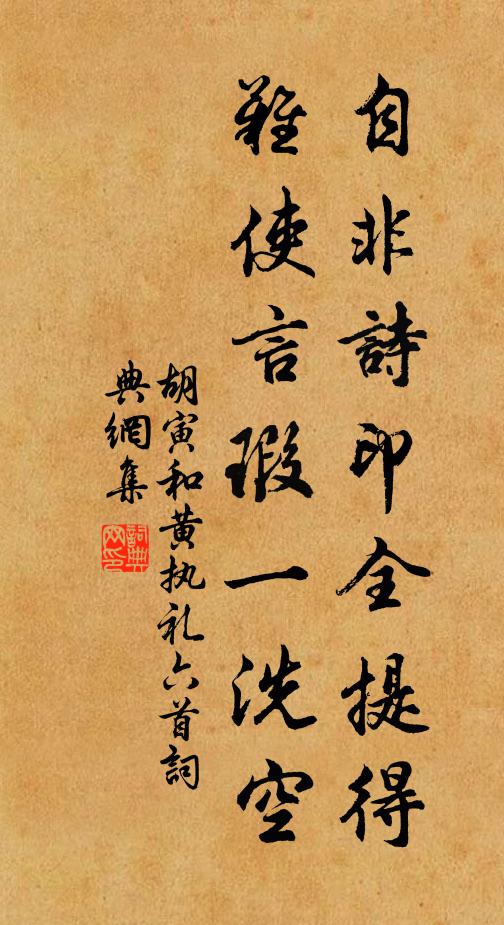 自非詩印全提得
難使言瑕一洗空
胡寅和黄执礼六首詞
典網集
詞典网印